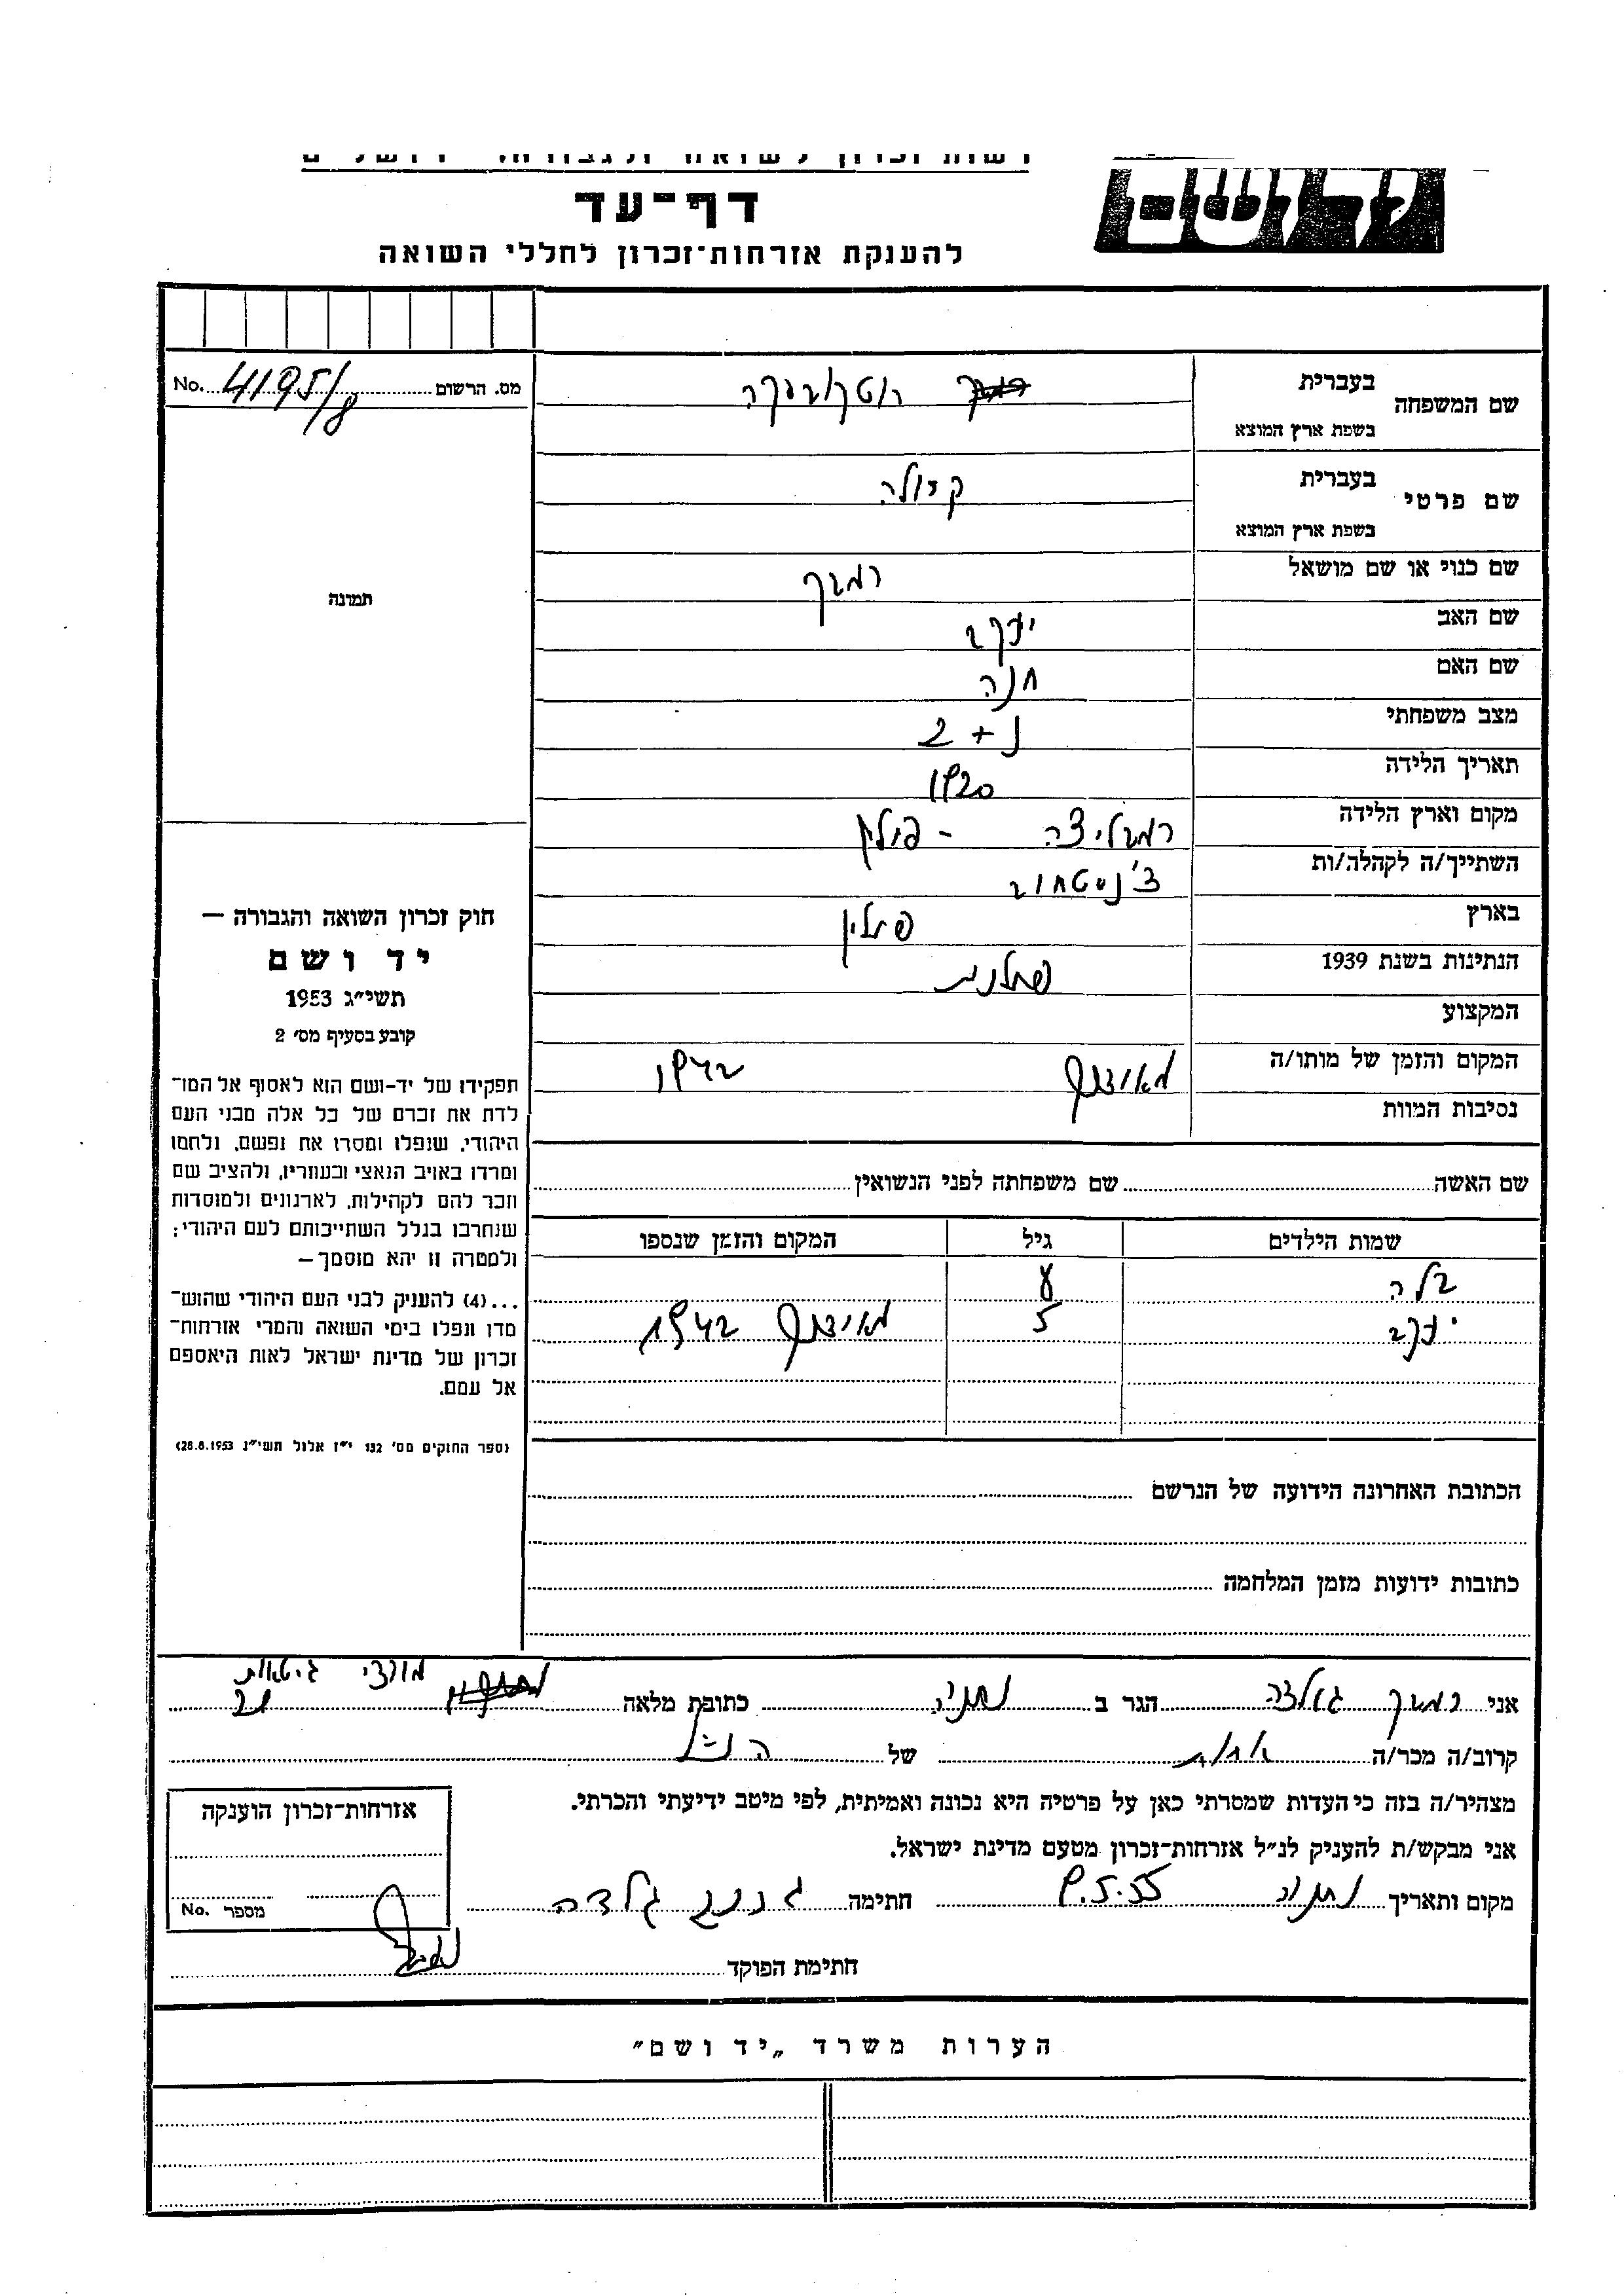 דף־עד
להענקת אזרחות־זכרון לחללי השואה
מס. הרשום 4195/8 No.
שם המשפחה בעברית
בשפת ארץ המוצא
שם פרטי בעברית
בשפת ארץ המוצא
שם כנוי או שם מושאל
שם האב יעקב
שם האם חנה
מצב משפחתי נ + 2
תאריך הלידה 1920
מקום וארץ הלידה - פולין
השתייך/ה לקהלה/ות צ'נסטחוב
בארץ פולין
הנתינות בשנת 1939 פולנית
המקצוע
המקום והזמן של מותו/ה 1942
נסיבות המוות
תמונה
חוק זכרון השואה והגבורה —
יד ושם
תשי״ג 1953
קובע בסעיף מס׳ 2
תפקידו של יד-ושם הוא לאסוף אל המו־
לדת את זכרם של כל אלה מבני העם
היהודי, שנפלו ומסרו את נפשם, נלחמו
ומרדו באויב הנאצי ובעוזריו, ולהציב שם
וזכר להם לקהילות, לארגונים ולמוסדות
שנחרבו בגלל השתייכותם לעם היהודי;
ולמטרה זו יהא מוסמך—
...(4) להעניק לבני העם היהודי שהוש־
מדו ונפלו בימי השואה והמרי אזרחות־
זכרון של מדינת ישראל לאות היאספם
אל עמם.
(ספר החוקים מס׳ 132 י״ז אלול תשי״ג 28.8.1953)
שם האשה שם משפחתה לפני הנשואין
שמות הילדים גיל המקום והזמן שנספו
בלה
יעקב 5 1942
הכתובת האחרונה הידועה של הנרשם
כתובות ידועות מזמן המלחמה
אני הגר ב נתניה כתובת מלאה מורדי גיטאות 21
קרוב/ה מכר/ה אחות של הנ"ל
מצהיר/ה בזה כי העדות שמסרתי כאן על פרטיה היא נכונה ואמיתית, לפי מיטב ידיעתי והכרתי.
אני מבקש/ת להעניק לנ״ל אזרחות־זכרון מטעם מדינת ישראל.
מקום ותאריך נתניה 9.5.55 חתימה
אזרחות־זכרון הוענקה
מספר No.
חתימת הפוקד
הערות משרד „יד ושם״